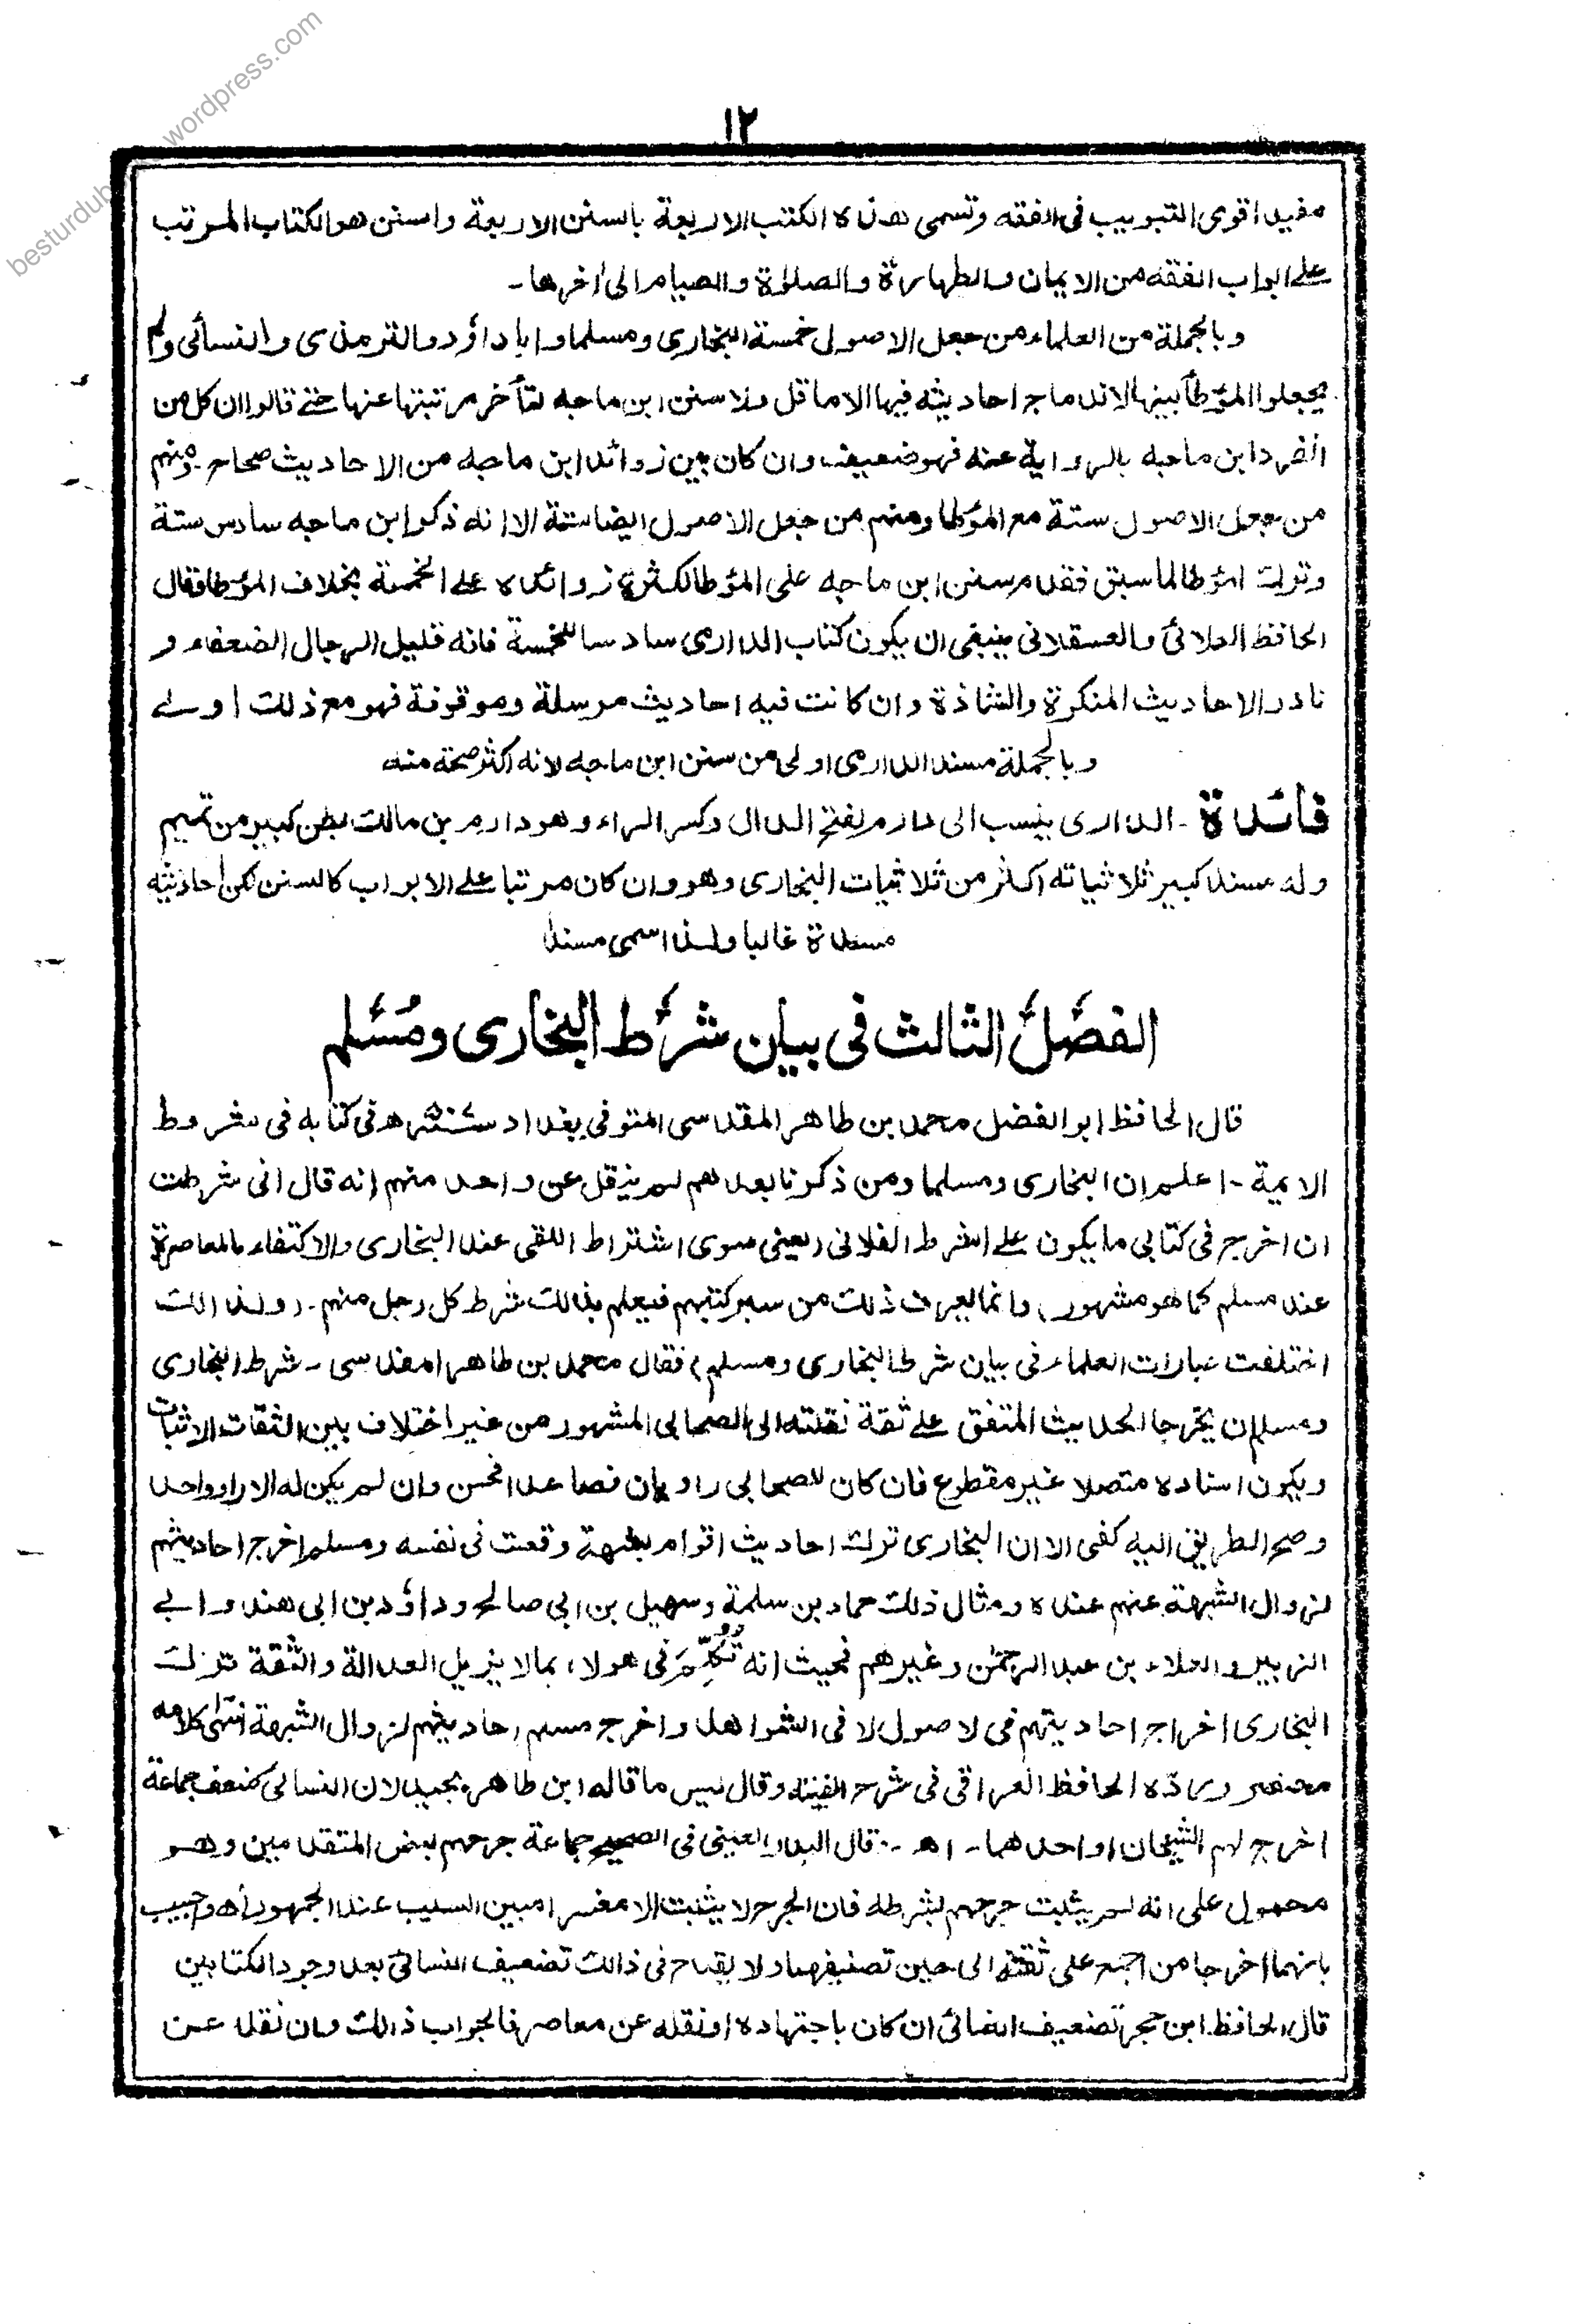 besturdub wordpress.com
١٢
مفيد اقوى التبويب فى الفقه وتسمى هذه الكتب الاربعة بالسنن الاربعة واسنن هو الكتاب المرتب
على ابواب الفقه من الايمان والطهارة والصلوٰة والصيام الى اٰخرها۔
وبالجملة من العلماء من جعل الاصول خمسة البخارى ومسلما و ابا داؤد والترمذى والنسائى ولم
يجعلوا المؤطأ بينها لاندماج احاديثه فيها الا ما قل ولا سنن ابن ماجه لتأخر مرتبتها عنها حتى قالوا ان كل من
انفرد ابن ماجه بالرواية عنه فهو ضعيف وان كان بين زوائد ابن ماجه من الاحاديث صحاح۔ ومنهم
من جعل الاصول ستة مع المؤطا ومنهم من جعل الاصول ايضا ستة الا انه ذكر ابن ماجه سادس ستة
وترك المؤطا لما سبق فقدم سنن ابن ماجه على المؤطا لكثرة زوائده على الخمسة بخلاف المؤطا فقال
الحافظ العلائى والعسقلانى ينبغى ان يكون كتاب الدارمى سادسا للخمسة فانه قليل الرجال الضعفاء و
نادر الاحاديث المنكرة والشاذة وان كانت فيه احاديث مرسلة وموقوفة فهو مع ذلك اولى
وبالجملة مسند الدارمى اولى من سنن ابن ماجه لانه اكثر صحة منه
فائدة۔ الدارمى ينسب الى دارم بفتح الدال وكسر الراء وهو دارم بن مالك بطن كبير من تميم
وله مسند كبير ثلاثياته اكثر من ثلاثيات البخارى وهو وان كان مرتبا على الابواب كالسنن لكن احاديثه
مسندة غالبا ولذا سمى مسندا
الفصل الثالث فى بيان شرط البخارى ومسلم
قال الحافظ ابو الفضل محمد بن طاهر المقدسى المتوفى ببغداد سنة ٥٠٧ه فى كتابه فى شروط
الايمة۔ اعلم ان البخارى ومسلما ومن ذكرنا بعدهم لم ينقل عن واحد منهم انه قال انى شرطت
ان اخرج فى كتابى ما يكون على الشرط الفلانى (يعنى سوى اشتراط اللقى عند البخارى والاكتفاء بالمعاصرة
عند مسلم كما هو مشهور) وانما يعرف ذلك من سبر كتبهم فيعلم بذالك شرط كل رجل منهم۔ (ولذالك
اختلفت عبارات العلماء فى بيان شرط البخارى ومسلم) فقال محمد بن طاهر المقدسى۔ شرط البخارى
ومسلم ان يخرجا الحديث المتفق على ثقة نقلته الى الصحابى المشهور من غير اختلاف بين الثقات الاثبات
ويكون اسناده متصلا غير مقطوع فان كان للصحابى راويان فصاعدا فحسن وان لم يكن له الا راو واحد
وصح الطريق اليه كفى الا ان البخارى ترك احاديث اقوام بشبهة وقعت فى نفسه ومسلم اخرج احاديثهم
لزوال الشبهة عنهم عنده ومثال ذلك حماد بن سلمة وسهيل بن ابى صالح وداؤد بن ابى هند وابى
الزبير والعلاء بن عبد الرحمٰن وغيرهم فحيث انه تُكُلِّمَ فى هولاء بما لا يزيل العدالة والثقة ترك
البخارى اخراج احاديثهم فى لاصول لا فى الشواهد واخرج مسلم احاديثهم لزوال الشبهة انتهى كلامه
مختصر ورده الحافظ العراقى فى شرح الفيته وقال ليس ما قاله ابن طاهر بجيد لان النسائى ضعف جماعة
اخرج لهم الشيخان او احدهما۔ اھ۔ قال البدر العينى فى الصحيح جماعة جرحهم بعض المتقدمين وهو
محمول على انه لم يثبت جرحهم بشرطه فان الجرح لا يثبت الا مفسرا مبين السبب عند الجمهور اھ واجيب
بانهما اخرجا من اجتمع على ثقته الى حين تصنيفهما ولا يقدح فى ذالك تضعيف النسائى بعد وجود الكتابين
قال الحافظ ابن حجر تضعيف النسائى ان كان باجتهاده او نقله عن معاصر فالجواب ذالك وان نقله عن